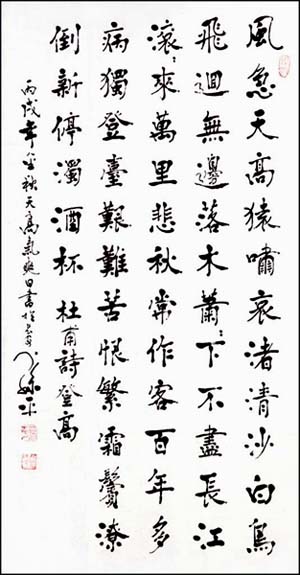 風急天高猿嘯哀渚清沙白鳥
飛迴無邊落木蕭〻下不盡長江
滾〻來萬里悲秋常作客百年多
病獨登臺艱難苦恨繁霜鬢潦
倒新停濁酒杯 杜甫詩登高
丙戌年金秋天高氣爽日書於